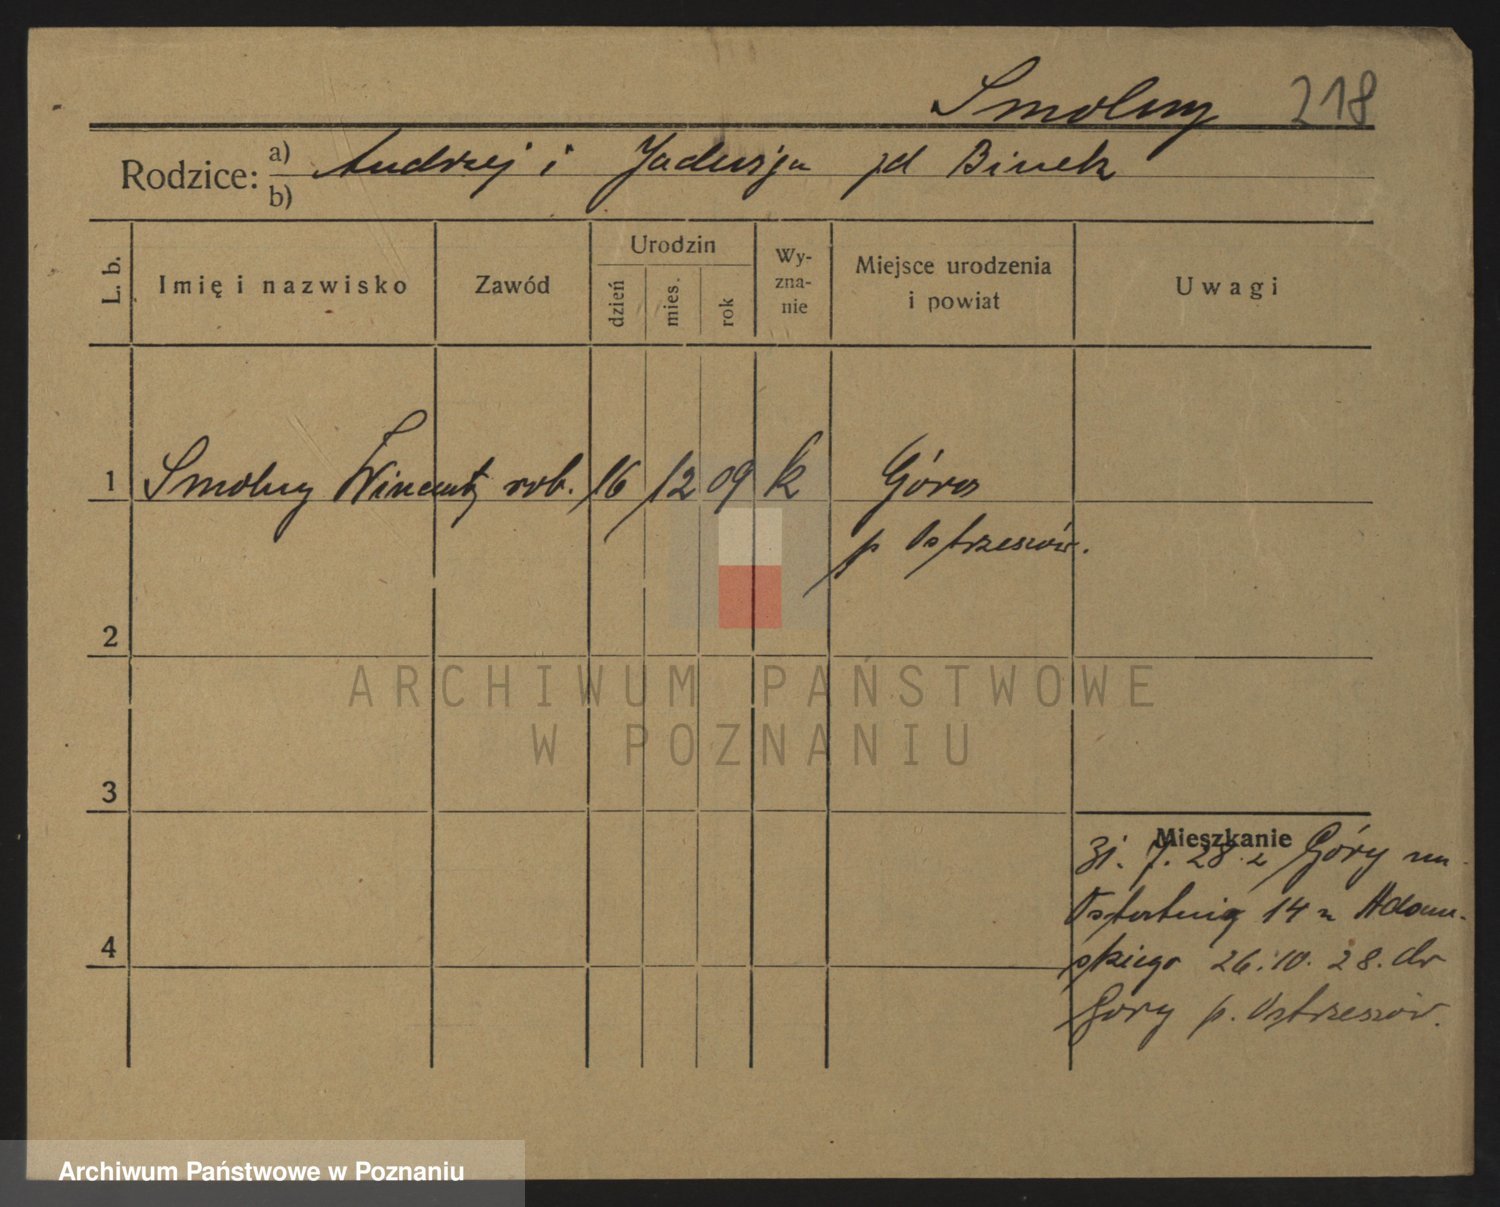 Smolny 218
Rodzice: a) b) Andrzej i Jadwiga zd Binek
L. b.
Imię i nazwisko
Zawód
Urodzin
dzień
mies.
rok
Wy-
zna-
nie
Miejsce urodzenia
i powiat
Uwagi
1 Smolny Wincenty rob. 16 12 09 k Góra
p Ostrzeszów.
2
ARCHIWUM PAŃSTWOWE
W POZNANIU
3
Mieszkanie
31. 7. 28 z Góry na
14 u Adam-
4
skiego 26.10. 28. do
Góry p. Ostrzeszów.
Archiwum Państwowe w Poznaniu